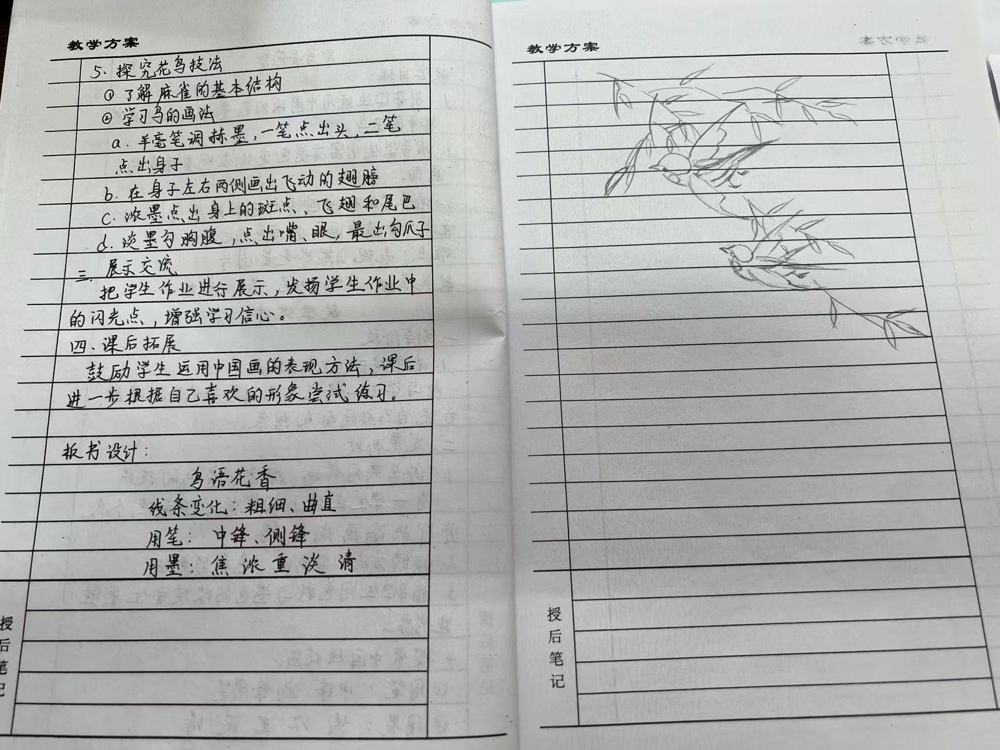 教学方案
5. 探究花鸟技法
① 了解麻雀的基本结构
② 学习鸟的画法
a. 羊毫笔调赫墨,一笔点出头,二笔
点出身子
b. 在身子左右两侧画出飞动的翅膀
c. 浓墨点出身上的斑点、飞翅和尾巴
d. 淡墨勾胸腹,点出嘴、眼,最出勾爪子
三. 展示交流
把学生作业进行展示,发扬学生作业中
的闪光点,增强学习信心。
四. 课后拓展
鼓励学生运用中国画的表现方法,课后
进一步根据自己喜欢的形象尝试练习。
板书设计:
鸟语花香
线条变化:粗细、曲直
用笔: 中锋、侧锋
用墨: 焦 浓 重 淡 清
授后笔记
教学方案
授后笔记